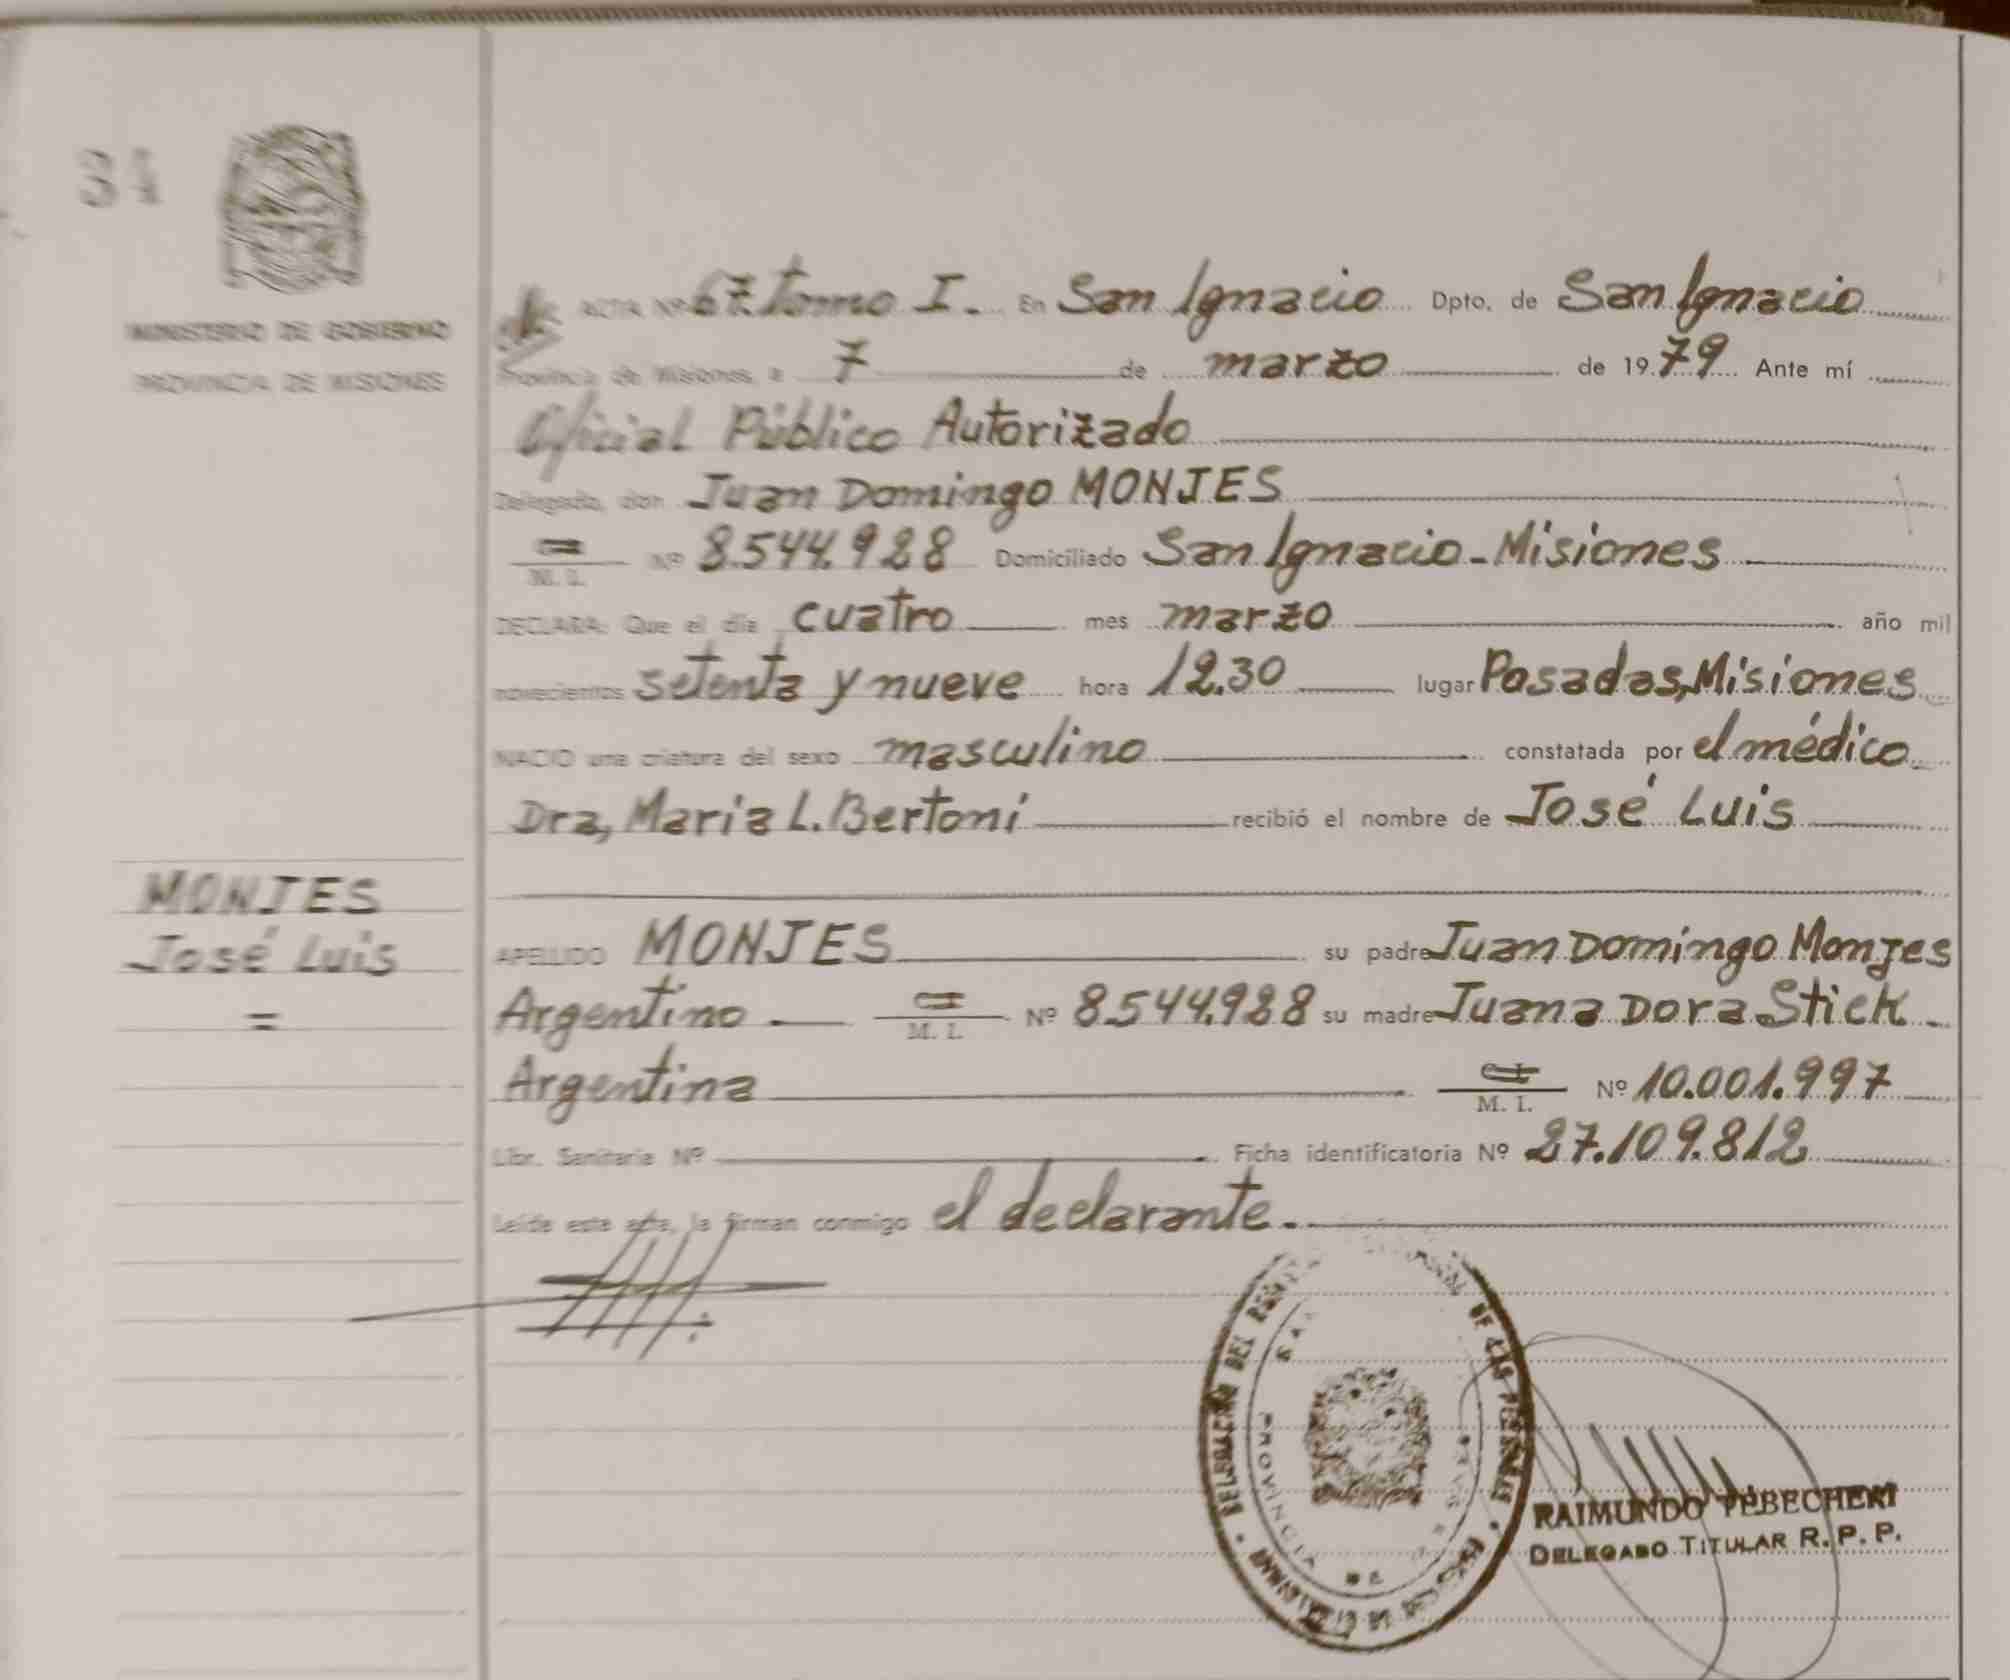 34
MINISTERIO DE GOBIERNO
PROVINCIA DE MISIONES
ACTA Nº 67. Tomo I. En San Ignacio Dpto. de San Ignacio
Provincia de Misiones, a 7 de marzo de 1979 Ante mí
Oficial Público Autorizado
Delegado, don Juan Domingo MONJES
M. I. Nº 8.544.928 Domiciliado San Ignacio - Misiones
DECLARA: Que el día cuatro mes marzo año mil
novecientos setenta y nueve hora 12.30 lugar Posadas, Misiones
NACIO una criatura del sexo masculino constatada por el médico
Dra, Maria L. Bertoni recibió el nombre de José Luis
MONJES
José Luis
=
APELLIDO MONJES su padre Juan Domingo Monjes
Argentino M. I. Nº 8.544.928 su madre Juana Dora Stick
Argentina C. I. M. I. Nº 10.001.997
Libr. Sanitaria Nº Ficha identificatoria Nº 27.109.812
Leída este acta, la firman conmigo el declarante.
DELEGACIÓN DEL DE LAS PERSONAS
PROVINCIA DE
RAIMUNDO TEBECHERI
DELEGADO TITULAR R. P. P.